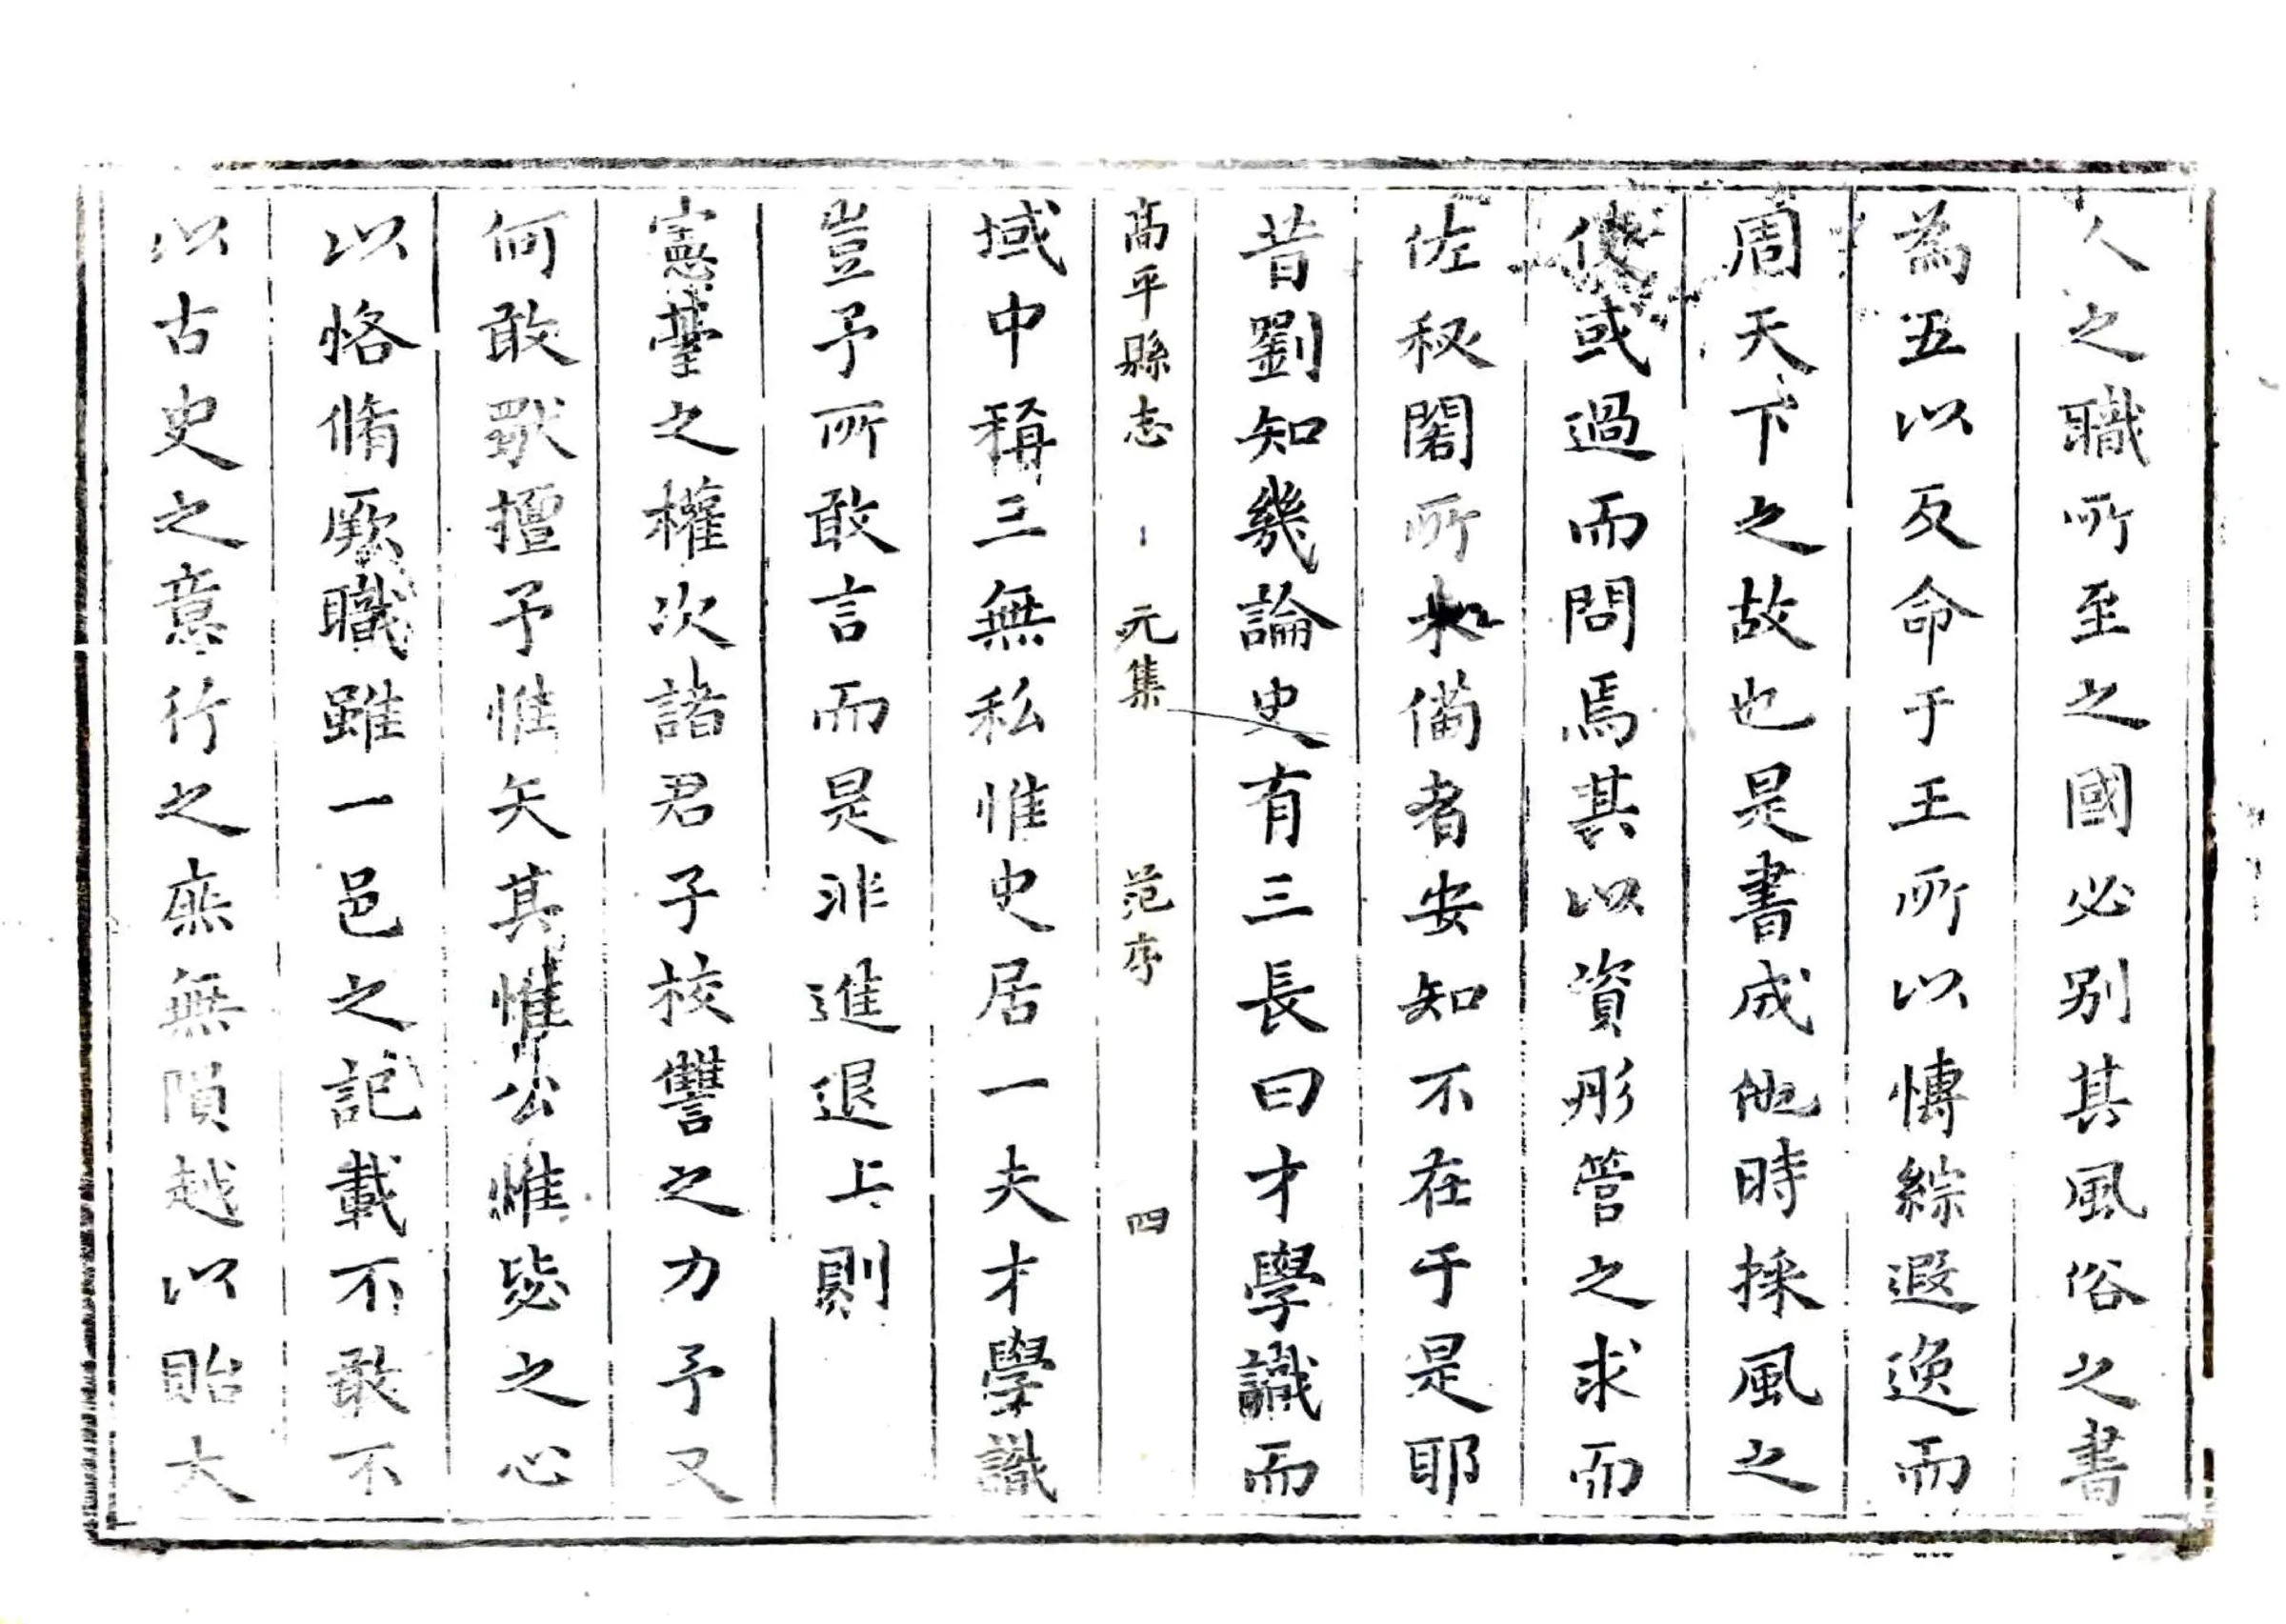 人之職所至之國必別其風俗之書
為五以反命于王所以慱綜遐逸而
周天下之故也是書成他時採風之
使或過而問焉其以資彤管之求而
佐秘閣所未備者安知不在于是耶
昔劉知幾論史有三長曰才學識而
高平縣志 元集 范序 四
域中稱三無私惟史居一夫才學識
豈予所敢言而是非進退上則
憲臺之權次諸君子校讐之力予又
何敢歝擅予惟矢其惟公惟毖之心
以恪脩厥職雖一邑之記載不敢不
以古史之意行之庶無隕越以貽大